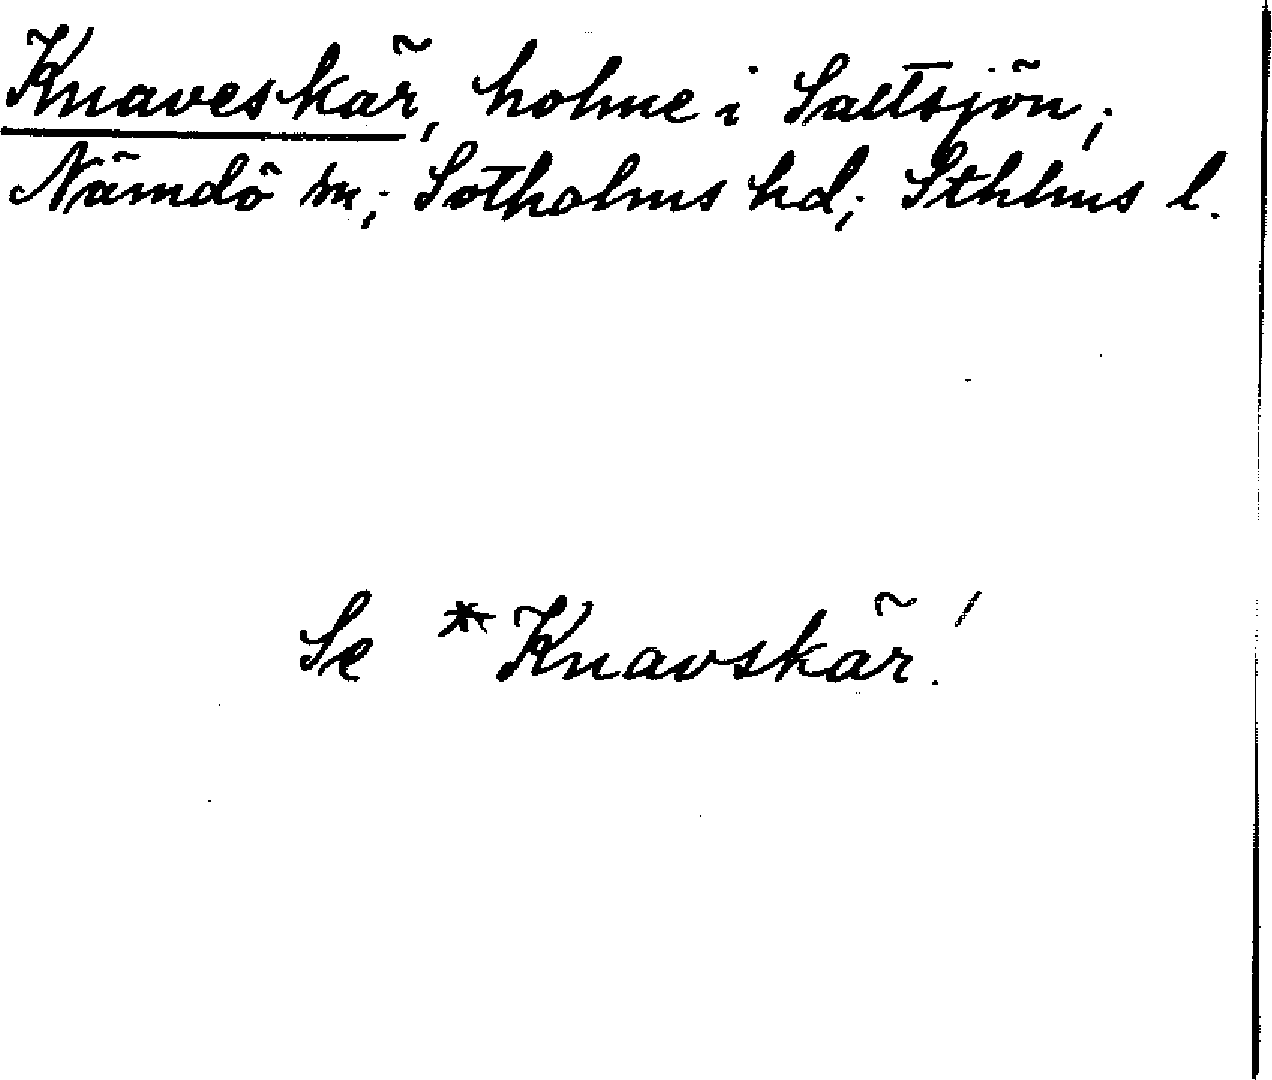 Knaveskär, holme i Saltsjön;
Nämdö sn; Sotholms hd; Sthlms l.
Se *Knavskär!